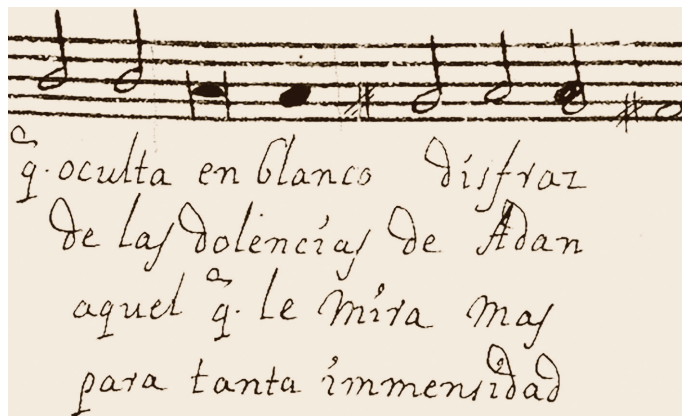 q̃. oculta en blanco disfraz
de las dolencias de Adan
aquel q̃. le mira mas
para tanta immensidad